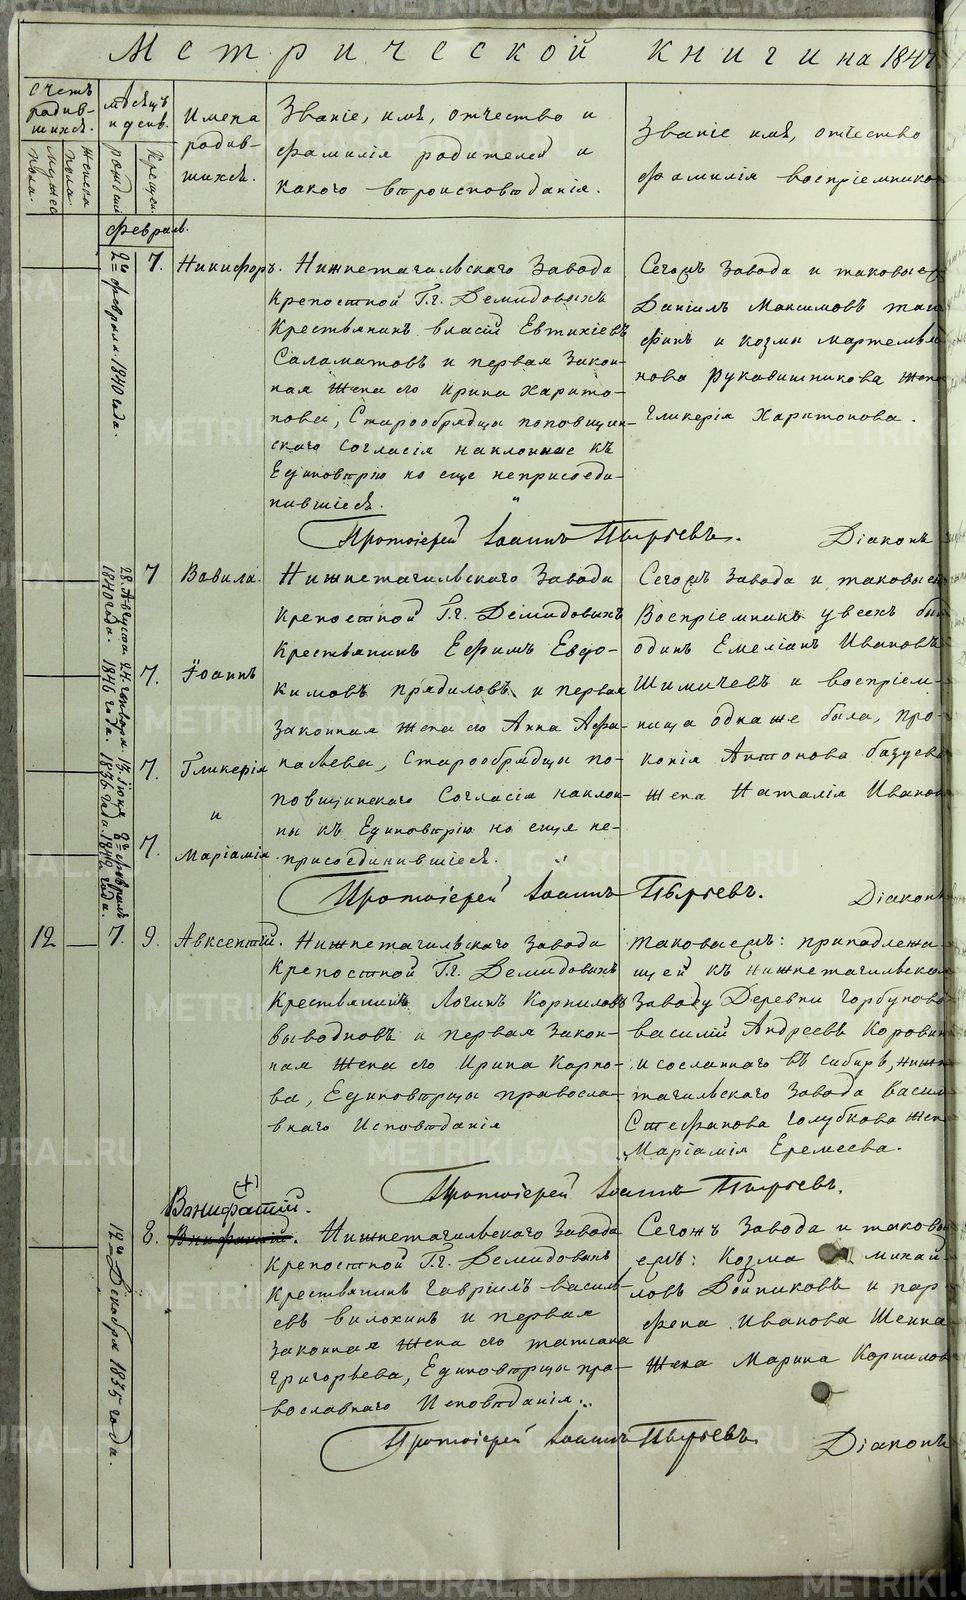 Метрической книги на 184
Счетъ родив-шихся.
мужес пола.
женска пола
Мѣсяцъ и день.
рожден
крещен.
Имена
родив-
шихся.
Званіе, имя, отчество и
фамилія родителей и
какого вѣроисповѣданія.
Званіе имя, отчество
фамилія воспріемнико
Февраль.
2го февраля 1840 года.
7.
Никифоръ.
Нижнетагильскаго Завода
Крепостной Г.г. Демидовыхъ
Крестьянинъ Власій Евтихіевъ
Саламатовъ и первая Закон-
ная Жена его Ирина Харито-
нова, Старообрядцы поповщин-
скаго согласія наклонные къ
Единовѣрію но еще неприсоеди-
нившіеся.
Сегожъ Завода и таковые
Даніилъ Максимовъ
и Козмы Мартемья
нова Рукавишникова Жен
Гликерія Харитонова.
Протоіерей Іоаннъ Пырьевъ.
Діаконъ
28. Августа 1840 года.
24. Генваря 1846 года.
13. Іюня 1836 года.
8го февраля 1842 года.
7
Вавила.
7.
Іоаннъ
7.
Гликерія
и
7.
Маріамія.
Нижнетагильскаго Завода
Крепостной Г.г. Демидовыхъ
Крестьянинъ Ефимъ Евдо-
кимовъ Прядиловъ и первая
Законная Жена его Анна Афа-
насьева, Старообрядцы по-
повщинскаго Согласія наклон-
ны къ Единовѣрію но еще не-
присоединившіеся.
Сегожъ Завода и таковые
Воспріемникъ у всехъ бы
одинъ Емеліанъ Ивановъ
Шимичевъ и воспріем-
ница одна же была, Про-
копія Антонова
Жена Наталія Иванов
Протоіерей Іоаннъ Пырьевъ.
Діаконъ
12
7.
9.
Авксентій.
Нижнетагильскаго Завода
Крепостной Г.г. Демидовыхъ
Крестьянинъ Логинъ Корниловъ
Выводновъ и первая Закон-
ная Жена его Ирина Карпо-
ва, Единовѣрцы правосла-
внаго Исповѣданія
Таковаежъ: принадлежа-
щей къ Нижнетагильском
Заводу Деревни Горбуново
Василій Андреевъ Коровин
и сосланнаго въ Сибирь, Нижне
тагильскаго Завода Васил
Стефанова Голубкова Жен
Маріамія Еремеева.
Протоіерей Іоаннъ Пырьевъ.
12го Декабря 1835 года.
8.
(+)
Вонифатій.
Нижнетагильскаго Завода
Крепостной Г.г. Демидовыхъ
Крестьянинъ Гавріилъ Василь
евъ Вилохинъ и первая
Законная Жена его Татіана
Григорьева, Единовѣрцы пра-
вославнаго Исповѣданія.
Сегожъ Завода и таковые
ежъ: Козма Михай
ловъ Дойниковъ и Пар-
фена Иванова Шеина
Жена Марина Корнилов
Протоіерей Іоаннъ Пырьевъ
Діаконъ
METRIKI.GASO-URAL.RU